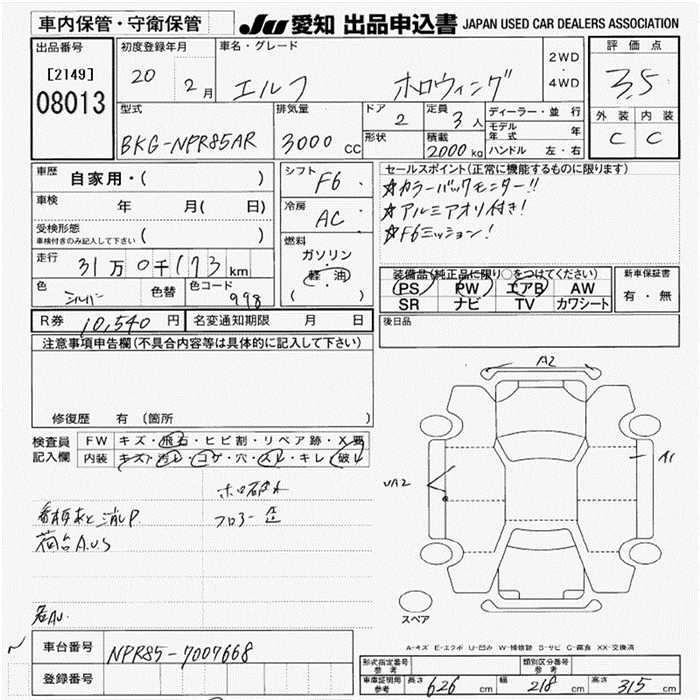 車内保管・守衛保管
JU 愛知 出品申込書 JAPAN USED CAR DEALERS ASSOCIATION
出品番号
[2149]
08013
初度登録年月
20 2月
車名・グレード
エルフ ホロウィング
2WD
・
4WD
評価点
3.5
外装 内装
C C
型式
BKG-NPR85AR
排気量
3000 CC
ドア
2
形状
定員
3人
積載
2000kg
ディーラー・並行
モデル年式 年
ハンドル 左・右
車歴
自家用・( )
車検
年 月( 日)
受検形態
車検付きのみ記入して下さい ( )
走行
31万0千173km
色
シルバー
色替
色コード
998
シフト
F6
冷房
AC
燃料
ガソリン
・
軽油
( )
セールスポイント(正常に機能するものに限ります)
☆カラーバックモニター!!
☆アルミアオリ付き!
☆F6ミッション!
装備品(純正品に限り○をつけてください)
PS PW エアB AW
SR ナビ TV カワシート
新車保証書
有・無
R券 10,540円
名変通知期限 月 日
後日品
注意事項申告欄(不具合内容等は具体的に記入して下さい)
修復歴 有 (箇所 )
検査員
記入欄
FW キズ・飛石・ヒビ割・リペア跡・X要
内装 キズ・汚レ・コゲ・穴・スレ・キレ・破レ
ホロ破れ
フロアー
荷台A.U.S
A2
UA2
A1
スペア
A-キズ E-エクボ U-凹み W-補修跡 S-サビ C-腐食 XX-交換済
車台番号
NPR85-7007668
登録番号
形式指定番号
参考
類別区分番号
参考
車庫証明用
参考
長さ 626 cm 幅 218 cm 高さ 315 cm